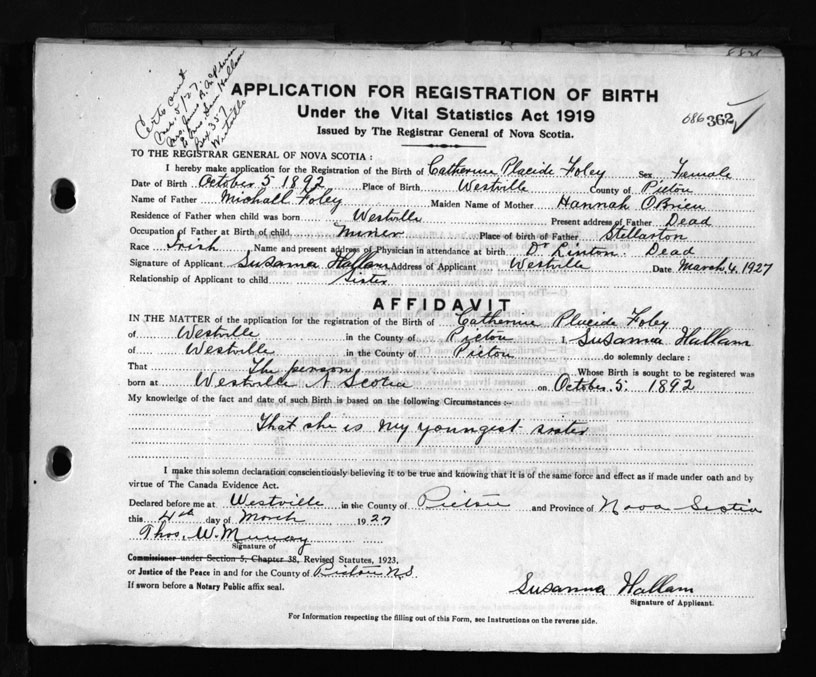 Mar 5/27.
Box 357
Westville
APPLICATION FOR REGISTRATION OF BIRTH
Under the Vital Statistics Act 1919
Issued by The Registrar General of Nova Scotia.
686 362
TO THE REGISTRAR GENERAL OF NOVA SCOTIA :
I hereby make application for the Registration of the Birth of Catherine Placide Foley Sex Female
Date of Birth October 5 1892 Place of Birth Westville County of Pictou
Name of Father Michall Foley Maiden Name of Mother Hannah OBrien
Residence of Father when child was born Westville Present address of Father Dead
Occupation of Father at Birth of child. Miner Place of birth of Father Stellarton
Race Irish Name and present address of Physician in attendance at birth Dr Kinton. Dead
Signature of Applicant Susanna Hallam Address of Applicant Westville Date March 4, 1927
Relationship of Applicant to child Sister
AFFIDAVIT
IN THE MATTER of the application for the registration of the Birth of Catherine Placide Foley
of Westville in the County of Pictou I, Susanna Hallam
of Westville in the County of Pictou do solemnly declare :
That The person Whose Birth is sought to be registered was
born at Westville N Scotia on October 5. 1892
My knowledge of the fact and date of such Birth is based on the following Circumstances :-
That she is my youngest sister
I make this solemn declaration conscientiously believing it to be true and knowing that it is of the same force and effect as if made under oath and by
virtue of The Canada Evidence Act.
Declared before me at Westville in the County of Pictou and Province of Nova Scotia
this 4th day of March 1927
Thos. W. Murray
Signature of
Commissioner under Section 5, Chapter 38, Revised Statutes, 1923,
or Justice of the Peace in and for the County of Pictou N.S.
If sworn before a Notary Public affix seal.
Susanna Hallam
Signature of Applicant.
For Information respecting the filling out of this Form, see Instructions on the reverse side.